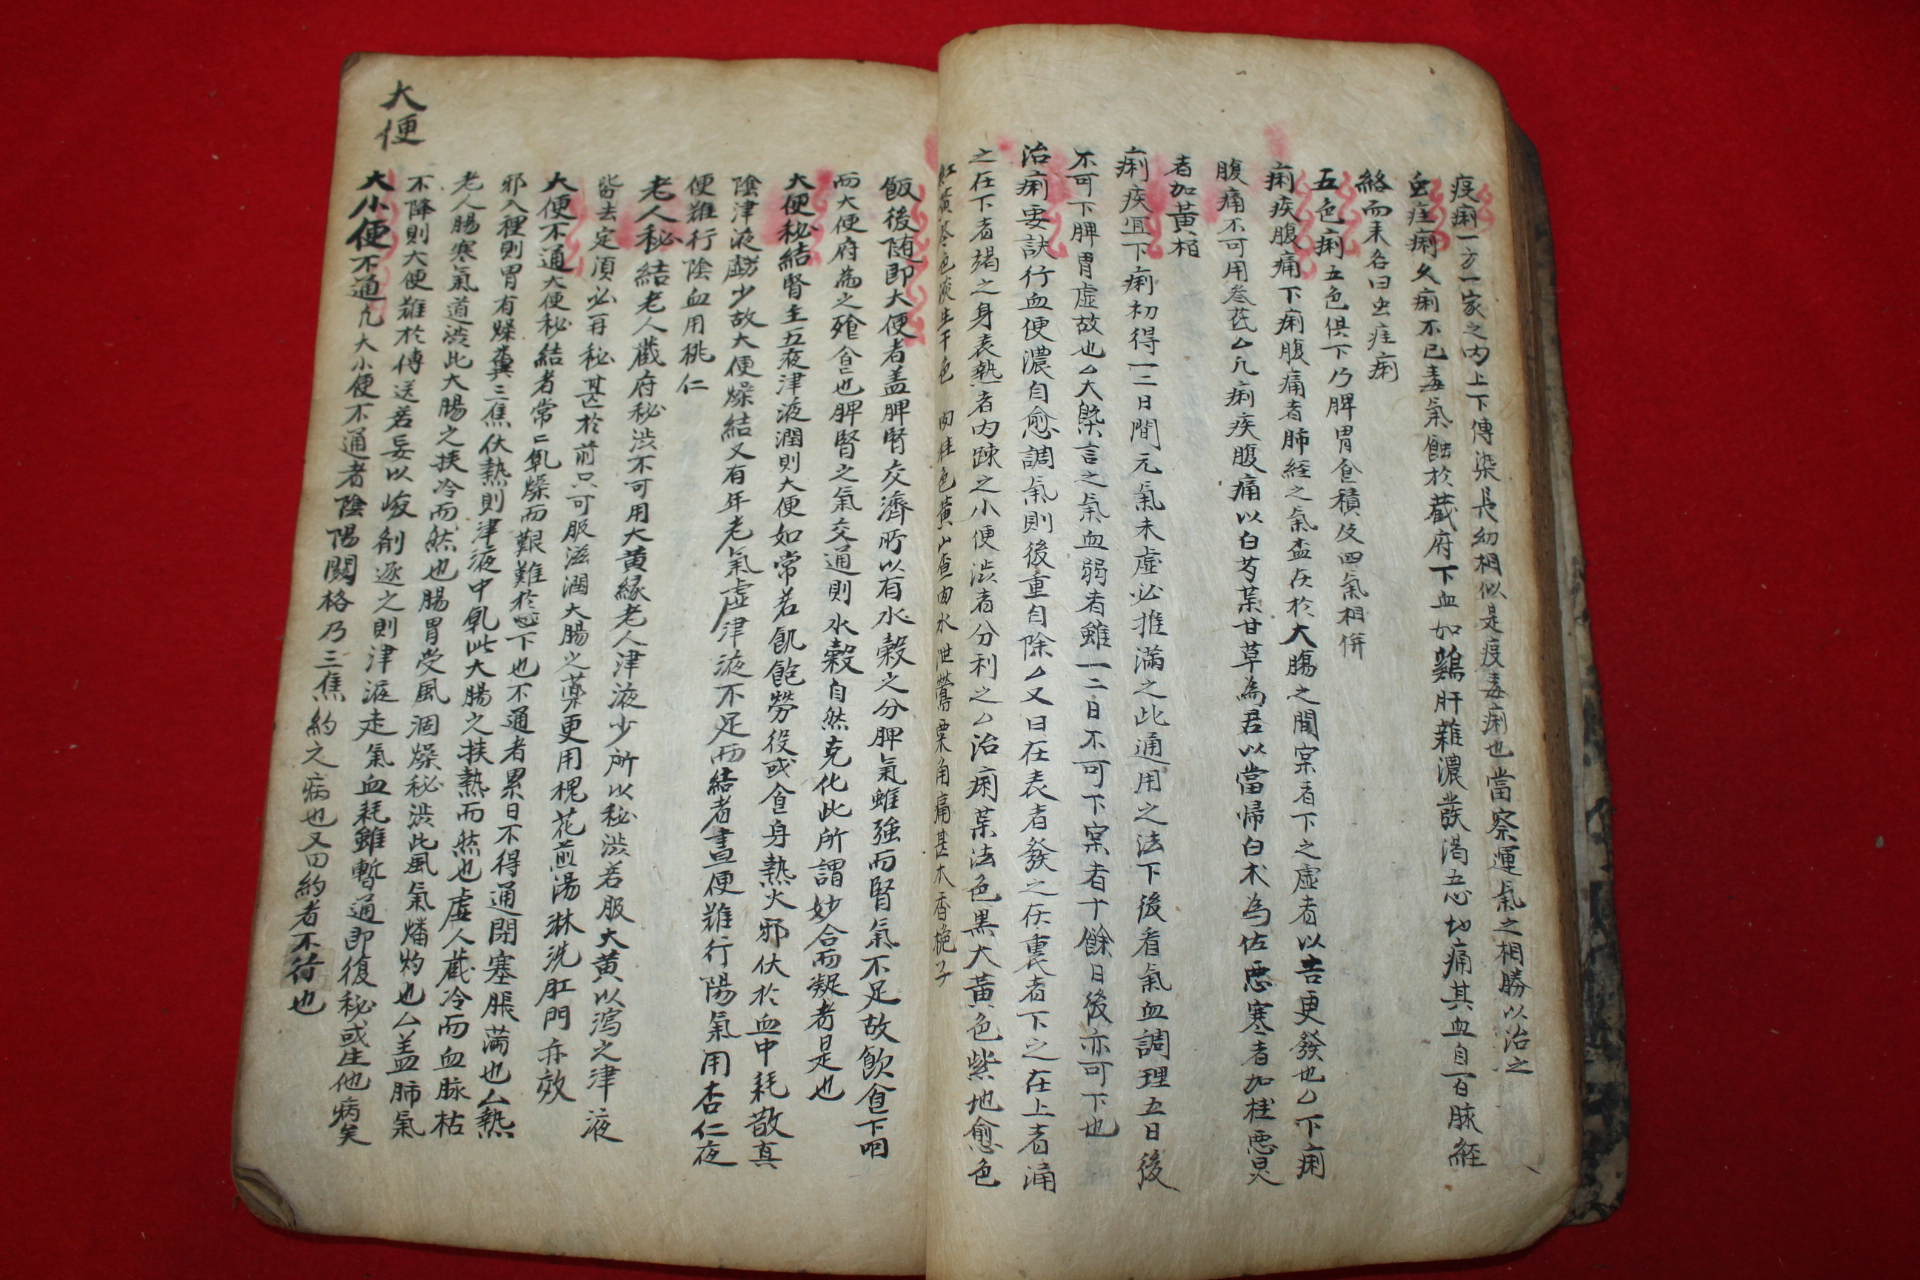 疫痢一方一家之內上下傳染長幼相似是疫毒痢也當察運氣之相勝以治之
虫疰痢久痢不已毒氣蝕於臟府下血如鷄肝雜濃發渴五心切痛其血自百脉經
絡而来名曰虫疰痢
五色痢五色俱下乃脾胃食積及四氣相倂
痢疾腹痛下痢腹痛者肺經之氣盃在於大膓之間宲者下之虛者以苦更發也ㅿ下痢
腹痛不可用叄芪ㅿ凡痢疾腹痛以白芍藥甘草為君以當歸白术為佐惡寒者加桂惡炅
者加黃栢
痢疾冝下痢初得一二日間元氣未虛必推滿之此通用之法下後看氣血調理五日後
不可下脾胃虛故也ㅿ大槩言之氣血弱者雖一二日不可下宲者十餘日後亦可下也
治痢要訣行血便濃自愈調氣則後重自除ㅿ又曰在表者發之在裏者下之在上者涌
之在下者竭之身表熱者內踈之小便澁者分利之ㅿ治痢藥法色黑大黃色紫地愈色
紅黃芩色淡生干色 肉桂色黃山查曲水泄鶯粟角痛甚木香梔子
飯後随即大便者盖脾腎交濟所以有水穀之分脾氣雖強而腎氣不足故飮食下咽
而大便府為之飱食也脾腎之氣交通則水穀自然克化此所謂妙合而凝者是也
大便秘結腎主五夜津液潤則大便如常若飢飽勞役或食身熱火邪伏於血中耗散真
陰津液虧少故大便燥結又有年老氣虛津液不足而結者晝便难行陽氣用杏仁夜
便難行陰血用桃仁
老人秘結老人臟府秘澁不可用大黃緣老人津液少所以秘澁若服大黃以瀉之津液
皆去定湏必再秘甚於前只可服滋潤大腸之藥更用槐花煎湯淋洗肛門亦效
大便不通大便秘結者常〻乹燥而艱難於出下也不通者累日不得通閉塞脹滿也ㅿ熱
邪入裡則胃有燥糞三焦伏熱則津液中乹此大腸之挟熱而然也虛人臟冷而血脉枯
老人腸寒氣道澁此大腸之挟冷而然也腸胃受風涸燥秘澁此風氣燔灼也ㅿ盖肺氣
不降則大便難於傳送若妄以峻劑逐之則津液走氣血耗雖暫通即復秘或生他病矣
大便
大小便不通凡大小便不通者陰陽關格乃三焦約之病也又曰約者不行也